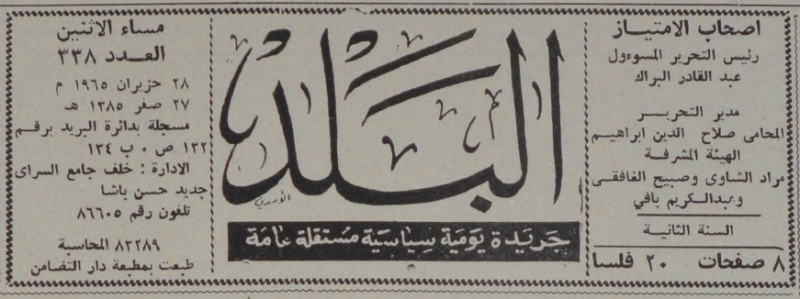 اصحاب الامتياز
رئيس التحرير المسوءول
عبد القادر البراك
مدير التحرير
المحامى صلاح الدين ابراهيم
الهيئة المشرفة
مراد الشاوى وصبيح الغافقى
وعبدالكريم بافي
السنة الثانية
٨ صفحات ٢٠ فلسا
البلد
جريدة يومية سياسية مستقلة عامة
مساء الاثنين
العدد ٣٣٨
٢٨ حزيران ١٩٦٥ م
٢٧ صفر ١٣٨٥ هـ
مسجلة بدائرة البريد برقم
١٣٢ ص ٠ ب ١٣٤
الادارة : خلف جامع السراى
جديد حسن باشا
تلفون رقم ٨٦٦٠٥
٨٢٢٨٩ المحاسبة
طبعت بمطبعة دار التضامن